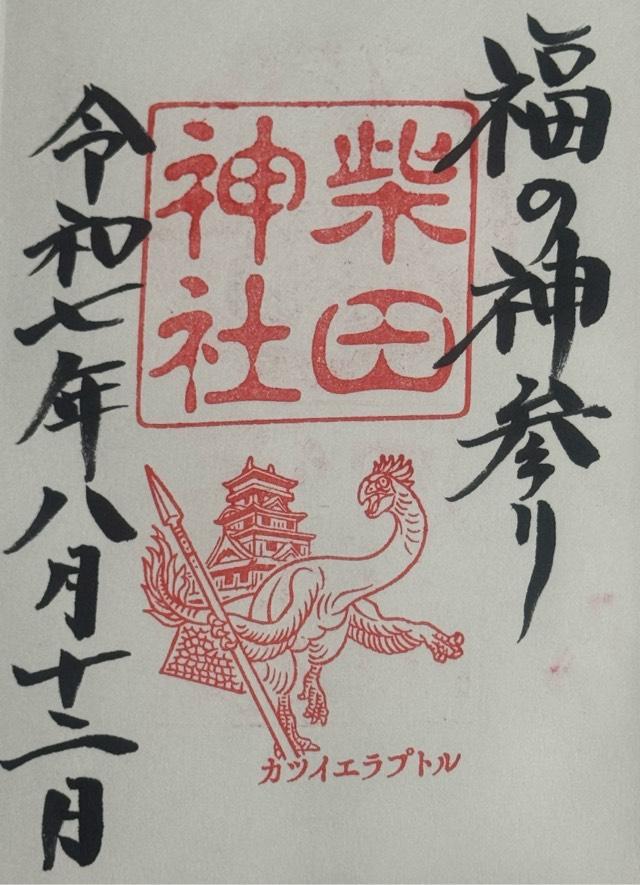 福の神参り
柴田
神社
令和七年八月十二日
カツイエラプトル